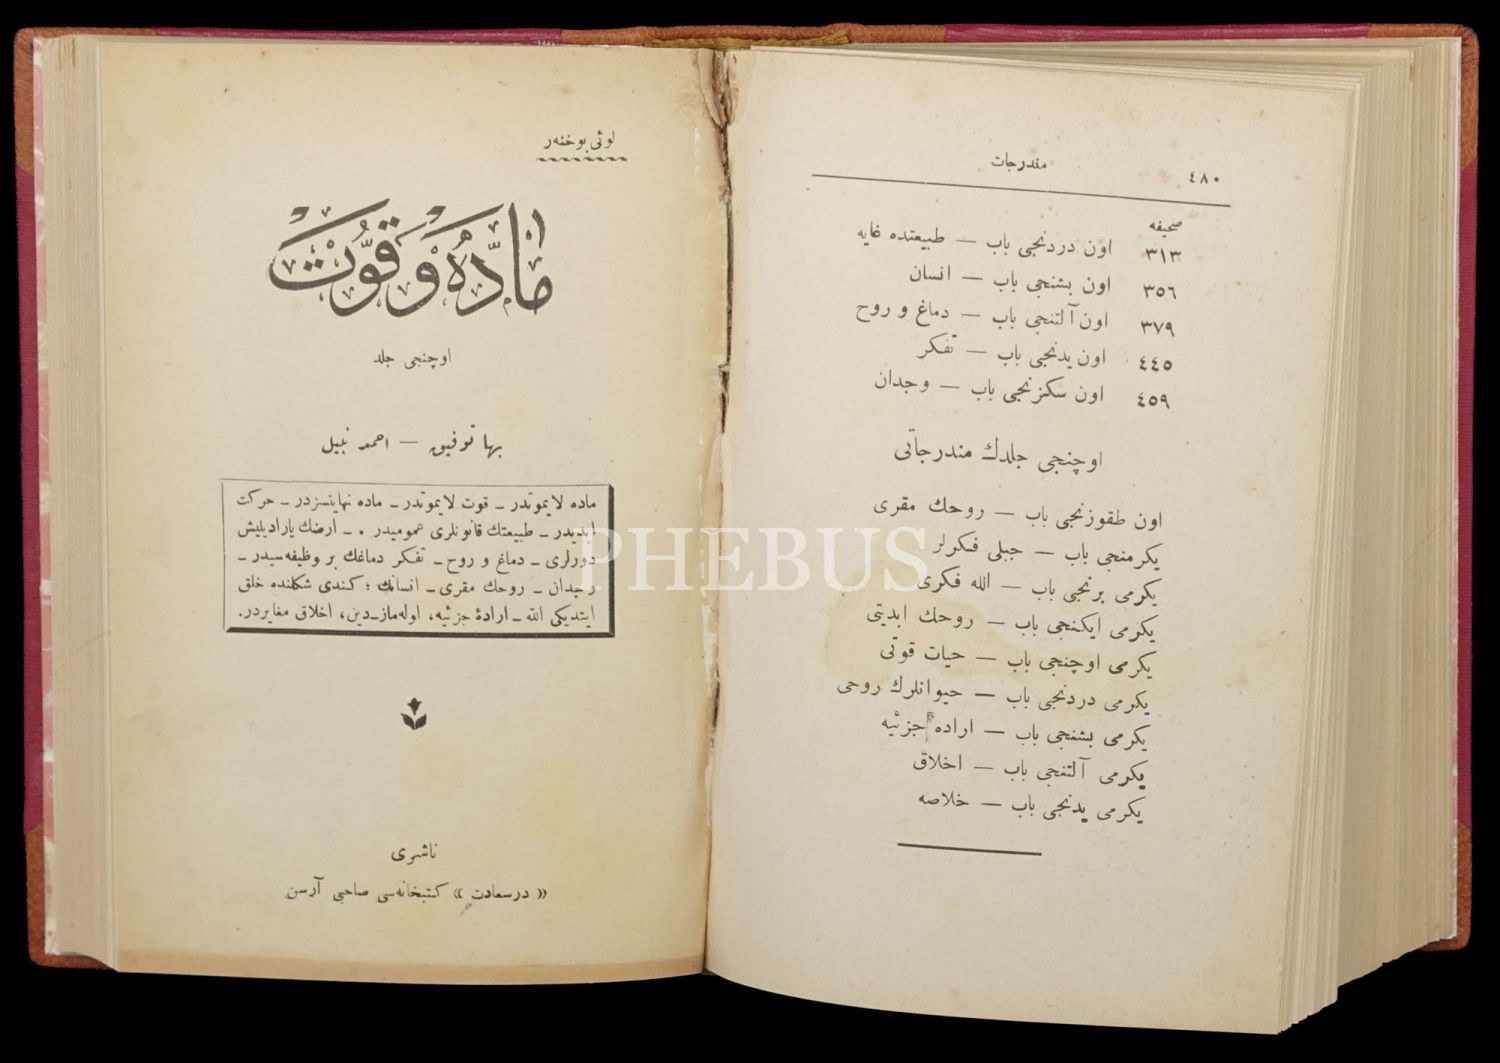 مندرجات
٤٨٠
صحیفه
٣١٣ اون دردنجی باب — طبیعتده غایه
٣٥٦ اون بشنجی باب — انسان
٣٧٩ اون آلتنجی باب — دماغ و روح
٤٤٥ اون یدنجی باب — تفکر
٤٥٩ اون سکزنجی باب — وجدان
اوچنجی جلدك مندرجاتی
اون طقوزنجی باب — روحك مقری
یکرمنجی باب — جبلی فکرلر
یکرمی برنجی باب — الله فکری
یکرمی ایکنجی باب — روحك ابدیتی
یکرمی اوچنجی باب — حیات قوتی
یکرمی دردنجی باب — حیوانلرك روحی
یکرمی بشنجی باب — اراده جزئیه
یکرمی آلتنجی باب — اخلاق
یکرمی یدنجی باب — خلاصه
لوئی بوخنەر
مادّه و قوّت
اوچنجی جلد
بها توفیق — احمد نبیل
ماده لایموتدر ـ قوت لایموتدر ـ ماده نهایتسزدر ـ حرکت
ابدیدر ـ طبیعتك قانونلری عمومیدر . ـ ارضك یارادیلیش
دورلری ـ دماغ و روح ـ تفکر دماغك بر وظیفه‌سیدر ـ
وجدان ـ روحك مقری ـ انسانك ؛ کندی شکلنده خلق
ایتدیکی الله ـ ارادۀ جزئیه، اوله‌ماز ـ دین، اخلاق مغایردر.
ناشری
« درسعادت » کتبخانه‌سی صاحبی آرسن
PHEBUS